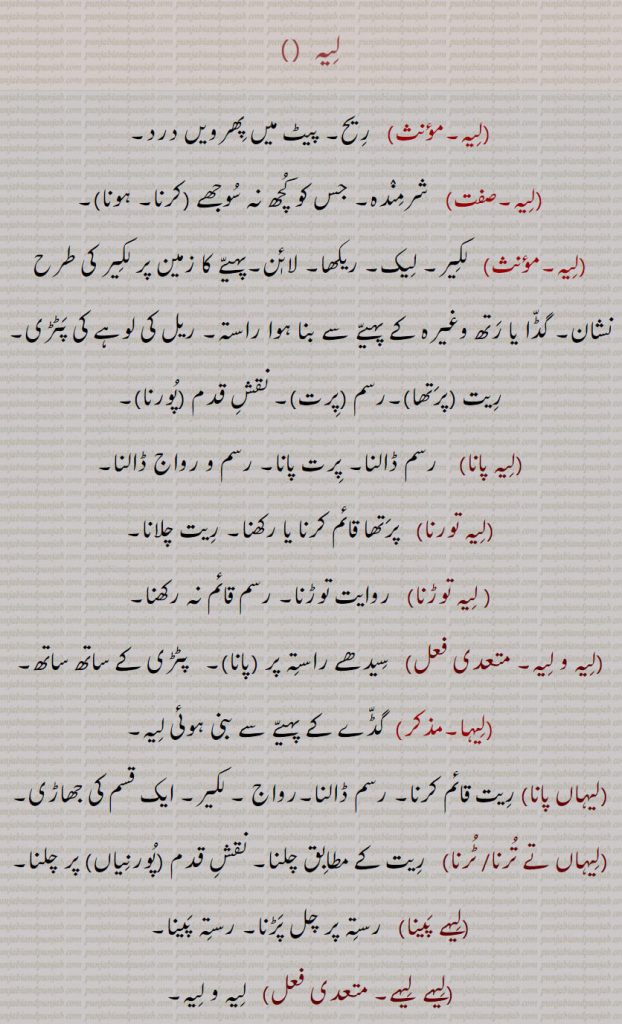 لِیہ ()
(لِیہ۔مؤنث) رِیح۔ پیٹ میں پِھرویں درد۔
(لِیہ۔صفت) شرمِنْدہ۔ جس کو کُچھ نہ سُوجھے (کرنا۔ ہونا)۔
(لِیہ۔مؤنث) لکِیر۔ لِیک۔ ریکھا۔ لائن۔پہیّے کا زمین پر لکِیر کی طرح
نشان۔ گڈّا یا رَتھ وغیرہ کے پہیّے سے بنا ہوا راستہ۔ ریل کی لوہے کی پَٹڑی۔
رِیت (پرَتھا)۔رسم (پِرت)۔ نقشِ قدم (پُورنا)۔
(لِیہ پانا) رسم ڈالنا۔ پِرت پانا۔ رسم و رواج ڈالنا۔
(لِیہ تورنا) پرَتھا قائم کرنا یا رکھنا۔ رِیت چلانا۔
( لِیہ توڑنا) روایت توڑنا۔ رسم قائم نہ رکھنا۔
(لِیہ و لِیہ۔ متعدی فعل) سِیدھے راستِہ پر (پانا)۔ پٹڑی کے ساتھ ساتھ۔
(لِیہا۔مذکر) گڈّے کے پہیّے سے بنی ہوئی لِیہ۔
(لِیہاں پانا) رِیت قائم کرنا۔ رسم ڈالنا۔رواج ۔ لکیر۔ ایک قسم کی جھاڑی۔
(لِیہاں تے تُرنا/ ٹُرنا) رِیت کے مطابِق چلنا۔ نقشِ قدم (پُورنِیاں) پر چلنا۔
(لِیہے پَینا) رستِہ پر چل پَڑنا۔ رستِہ پَینا۔
(لِیہے لِیہے۔ متعدی فعل) لِیہ و لِیہ۔